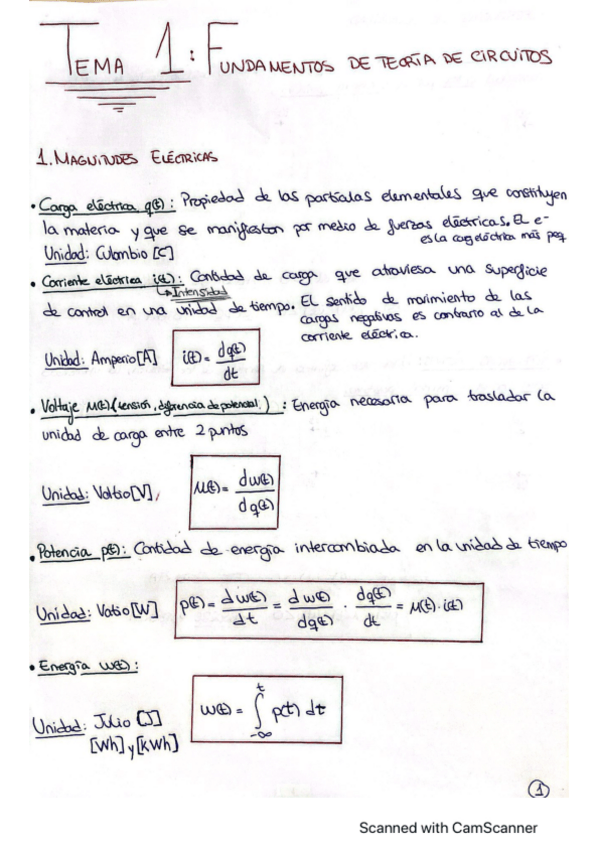 TEMA 1: FUNDAMENTOS DE TEORÍA DE CIRCUITOS
1. MAGNITUDES ELÉCTRICAS
• Carga eléctrica q(t): Propiedad de las partículas elementales que constituyen
la materia y que se manifiestan por medio de fuerzas eléctricas. EL e-
es la carg eléctrica más peq
Unidad: Culombio [C]
• Corriente eléctrica i(t): Cantidad de carga que atraviesa una superficie
↳ Intensidad
de control en una unidad de tiempo. El sentido de movimiento de las
cargas negativas es contrario al de la
corriente eléctrica.
Unidad: Amperio [A] i(t) = dq(t)/dt
• Voltaje u(t) (tensión, diferencia de potencial): Energía necesaria para trasladar la
unidad de carga entre 2 puntos
Unidad: Voltio [V], u(t) = dw(t)/dq(t)
• Potencia p(t): Cantidad de energía intercambiada en la unidad de tiempo
Unidad: Vatio [W] p(t) = dw(t)/dt = dw(t)/dq(t) · dq(t)/dt = u(t)·i(t)
• Energía w(t):
Unidad: Julio [J] w(t) = ∫_{-∞}^{t} p(t) dt
[Wh] y [kWh]
1
Scanned with CamScanner